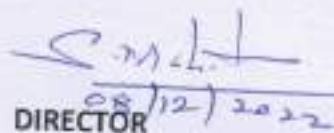 08/12/2022
DIRECTOR